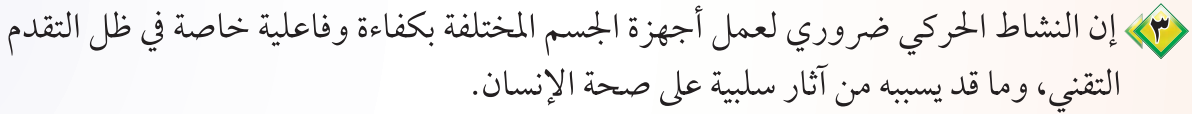 ٣ إن النشاط الحركي ضروري لعمل أجهزة الجسم المختلفة بكفاءة وفاعلية خاصة في ظل التقدم
التقني، وما قد يسببه من آثار سلبية على صحة الإنسان.